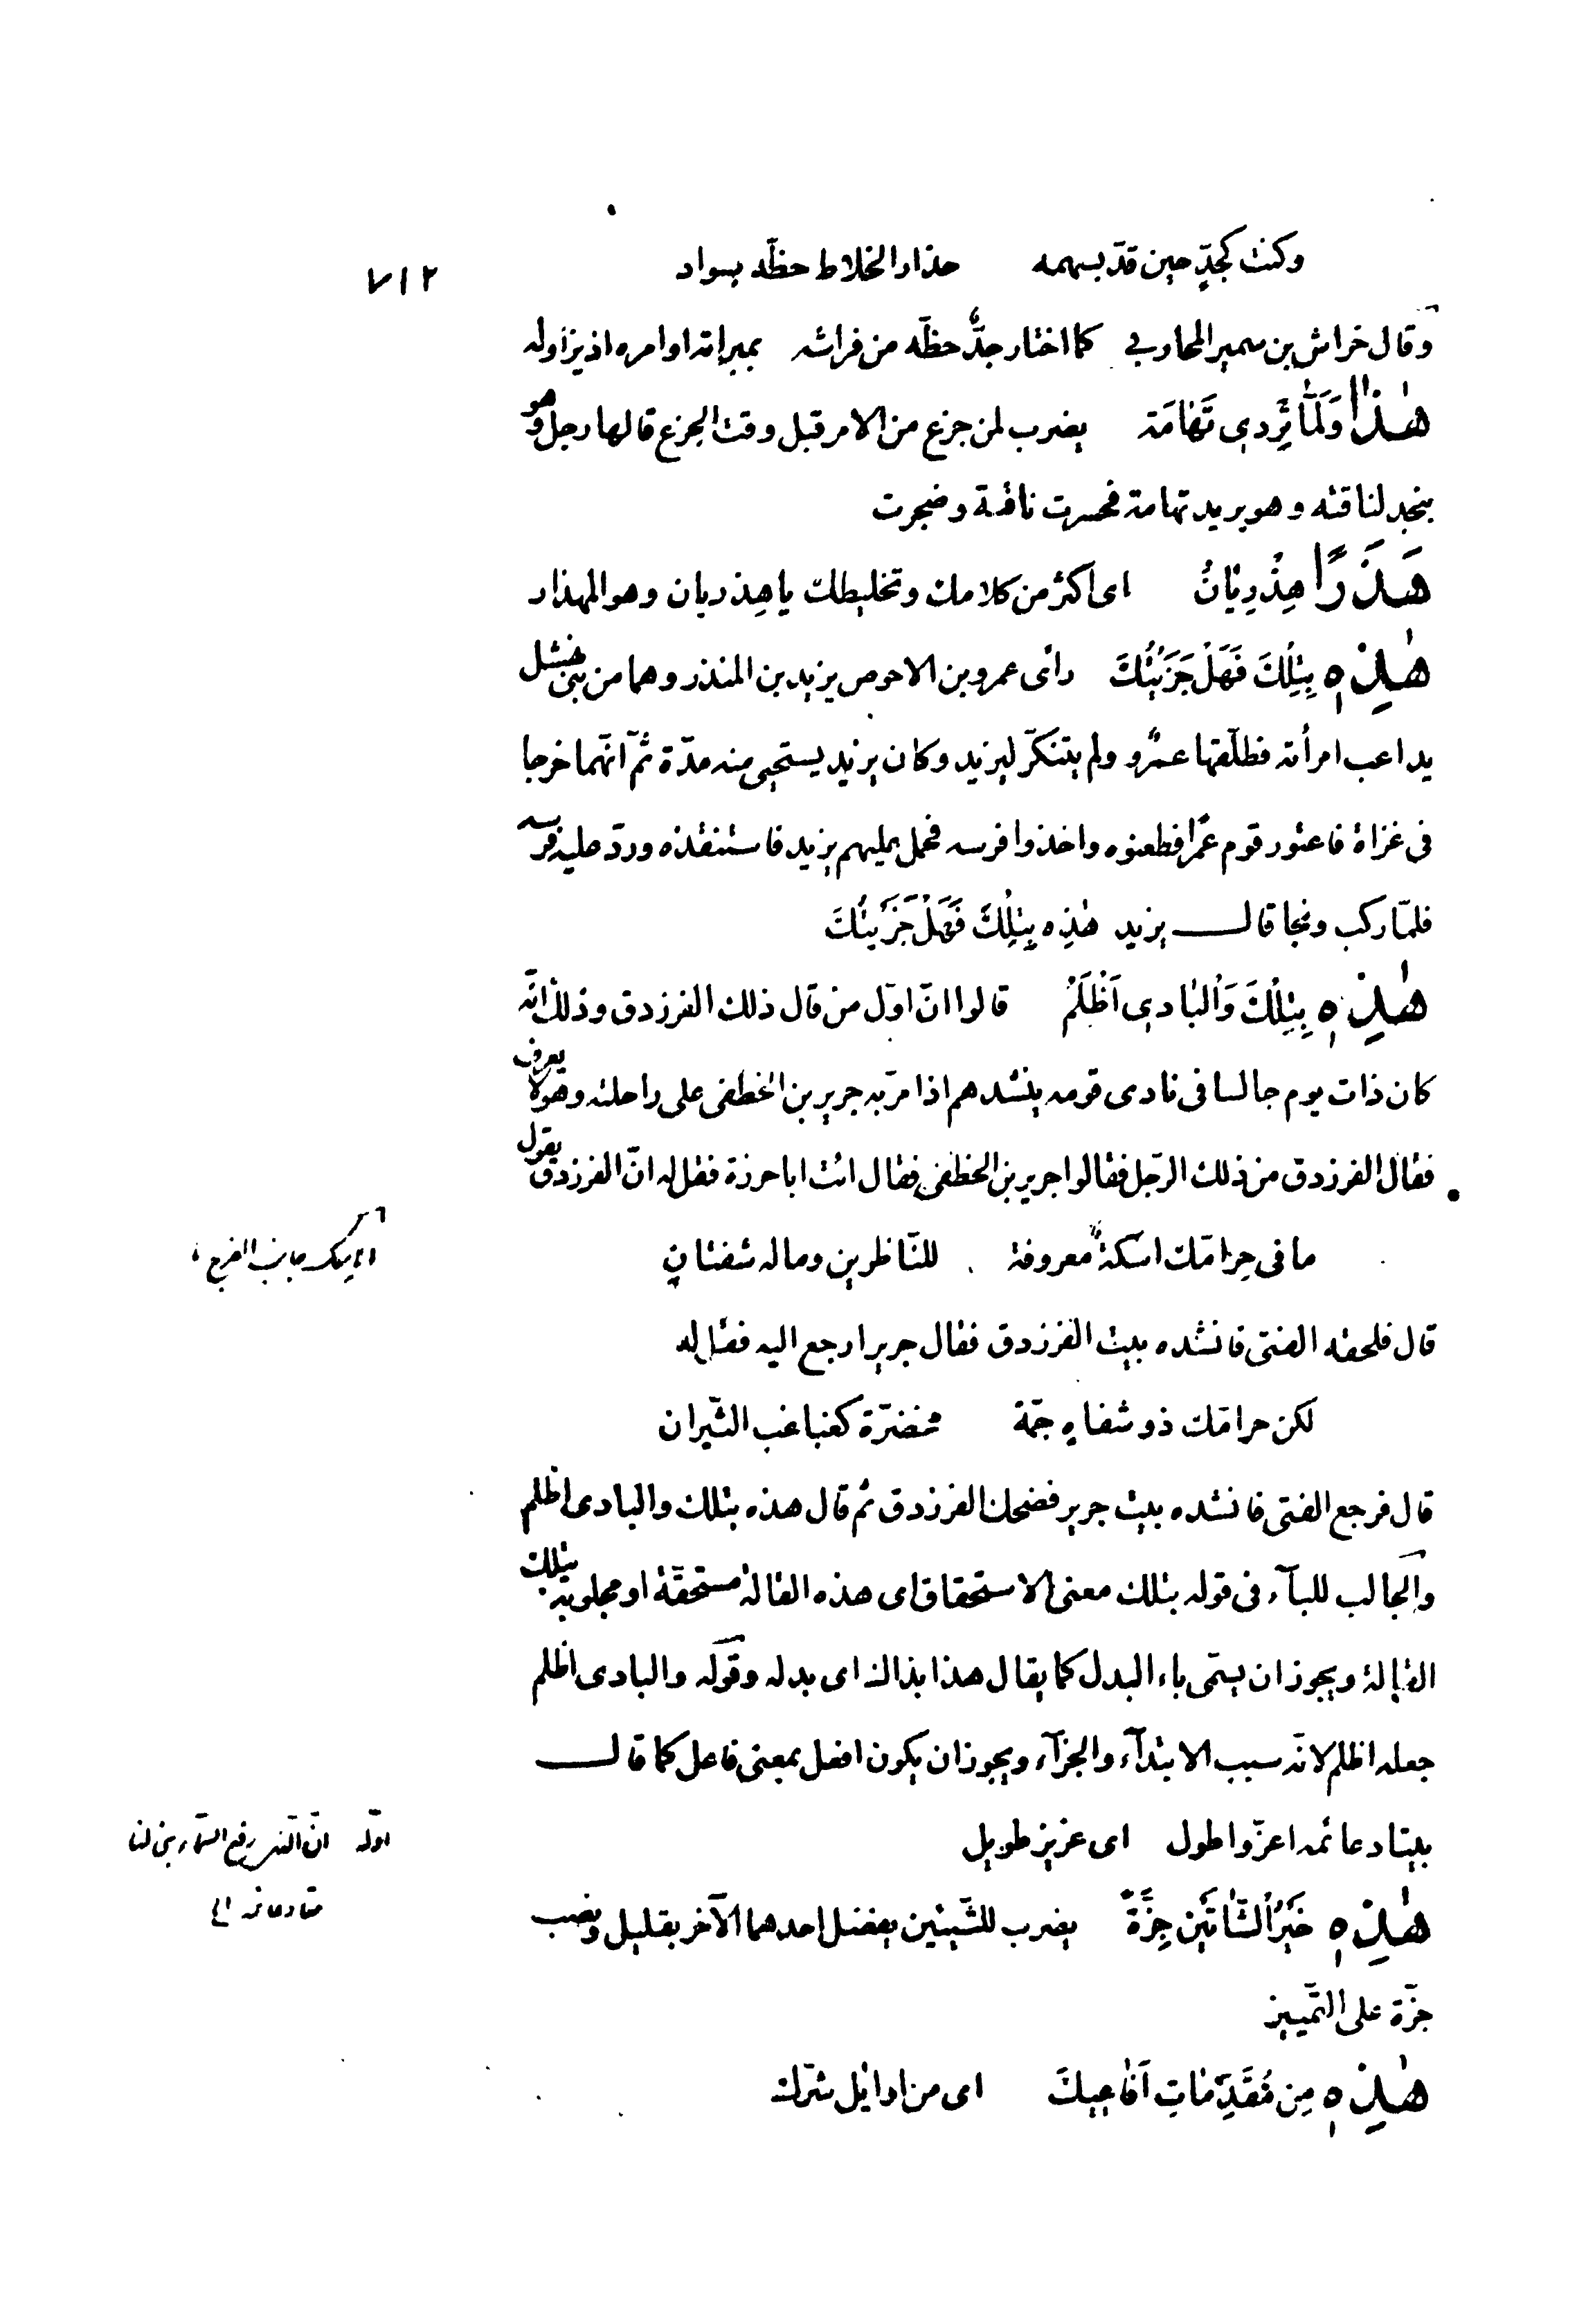 وكنت كجدّ حين قدّ بسهمه حذار الخلاط حظّه بسواد
٧١٢
وقال خراش بن سمير المحاربي كما اختار جدٌّ حظّه من فراشه بمبراته اوامره اذ يزاوله
هٰذَا وَلَمَّا تَرِدِى تَهَامَة يضرب لمن جزع من الامر قبل وقت الجزع قالها رجل وهو
بنجد لناقته وهو يريد تهامة فحسرت ناقته وضجرت
هَذَرًا هِذْرِيَانُ اى اكثر من كلامك وتخليطك يا هِذريان وهو المهذار
هٰذِهِ بِتِلْكَ فَهَلْ جَزَيْتُكَ رأى عمرو بن الاحوص يزيد بن المنذر وهما من بنى نهشل
يداعب امرأته فطلّقها عمرٌو ولم يتنكّر ليزيد وكان يزيد يستحيى منه مدّة ثمّ انّهما خرجا
فى غزاة فاعتور قوم عمرًا فطعنوه واخذوا فرسه فحمل عليهم يزيد فاستنقذه وردّ عليه فرسه
فلمّا ركب ونجا قال يزيد هٰذِه بِتِلْكَ فَهَلْ جَزَيْتُكَ
هٰذِهِ بِتِلْكَ وَالْبَادِى اَظْلَمُ قالوا انّ اوّل من قال ذلك الفرزدق وذلك انّه
كان ذات يوم جالسا فى نادى قومه ينشدهم اذا مرّ به جرير بن الخطفى على راحلته وهو لا يعرف
فقال الفرزدق من ذلك الرّجل فقالوا جرير بن الخطفى فقال ائت ابا حرزة فقل له انّ الفرزدق يقول
ما فى حِرامّك اسكةٌ معروفة للنّاظرين وماله شفتان
الاسك جانب الفرج
قال فلحقه الفتى فانشده بيت الفرزدق فقال جرير ارجع اليه فقل له
لكن حرامّك ذو شفاه جمّة مخضرّة كغباغب الثّيران
قال فرجع الفتى فانشده بيت جرير فضحك الفرزدق ثم قال هذه بتلك والبادى اظلم
والجالب للبآء فى قوله بتلك معنى الاستحقاق اى هذه القالة مستحقّة او مجلوبة بتلك
القالة ويجوز ان يسمّى باء البدل كما يقال هذا بذاك اى بدله وقوله والبادى اظلم
جعله اظلم لانّه سبب الابتدآء والجزآء ويجوز ان يكون افعل بمعنى فاعل كما قال
بيتا دعائمه اعزّ واطول اى عزيز طويل
اوّله انّ الّذى رفع السّماء بنى لنا
بيتا دعائمه الخ
هٰذِهِ خَيْرُ الشَّاتَيْنِ جِزَّةً يضرب للشّيئين يفضل احدهما الآخر بقليل ونصب
جزّة على التّمييز
هٰذِهِ مِن مُقَدِّمَاتِ اَفَاعِيكَ اى من اوائل شرّك